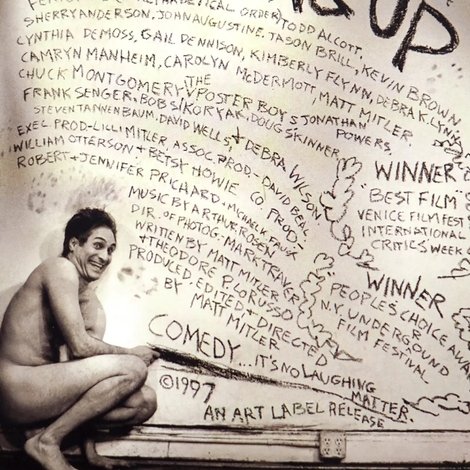 UP
ALPHABETICAL ORDER) TODD ALCOTT,
SHERRY ANDERSON, JOHN AUGUSTINE, JASON BRILL, KEVIN BROWN,
CYNTHIA DEMOSS, GAIL DENNISON, KIMBERLY FLYNN, DEBRA K. LYNN
CAMRYN MANHEIM, CAROLYN McDERMOTT, MATT MITLER,
CHUCK MONTGOMERY, THE POSTER BOYS, JONATHAN POWERS,
FRANK SENGER, BOB SIKORYAK, DOUG SKINNER,
STEVEN TANNENBAUM, DAVID WELLS + DEBRA WILSON
EXEC PROD-LILLI MITLER, ASSOC. PROD- DAVID BEAL
WILLIAM OTTERSON + BETSY HOWIE CO PROD-
ROBERT + JENNIFER PRICHARD-
MUSIC BY ARTHUR ROSEN
DIR. OF PHOTOG. MARK TRAVER
WRITTEN BY MATT MITLER
+ THEODORE P. LORUSSO
PRODUCED, EDITED + DIRECTED
BY MATT MITLER
WINNER
"BEST FILM"
VENICE FILM FEST
INTERNATIONAL
CRITICS' WEEK
WINNER
"PEOPLE'S CHOICE AWA
N.Y. UNDERGROUND
FILM FESTIVAL
COMEDY... IT'S NO LAUGHING
MATTER.
©1997
AN ART LABEL RELEASE